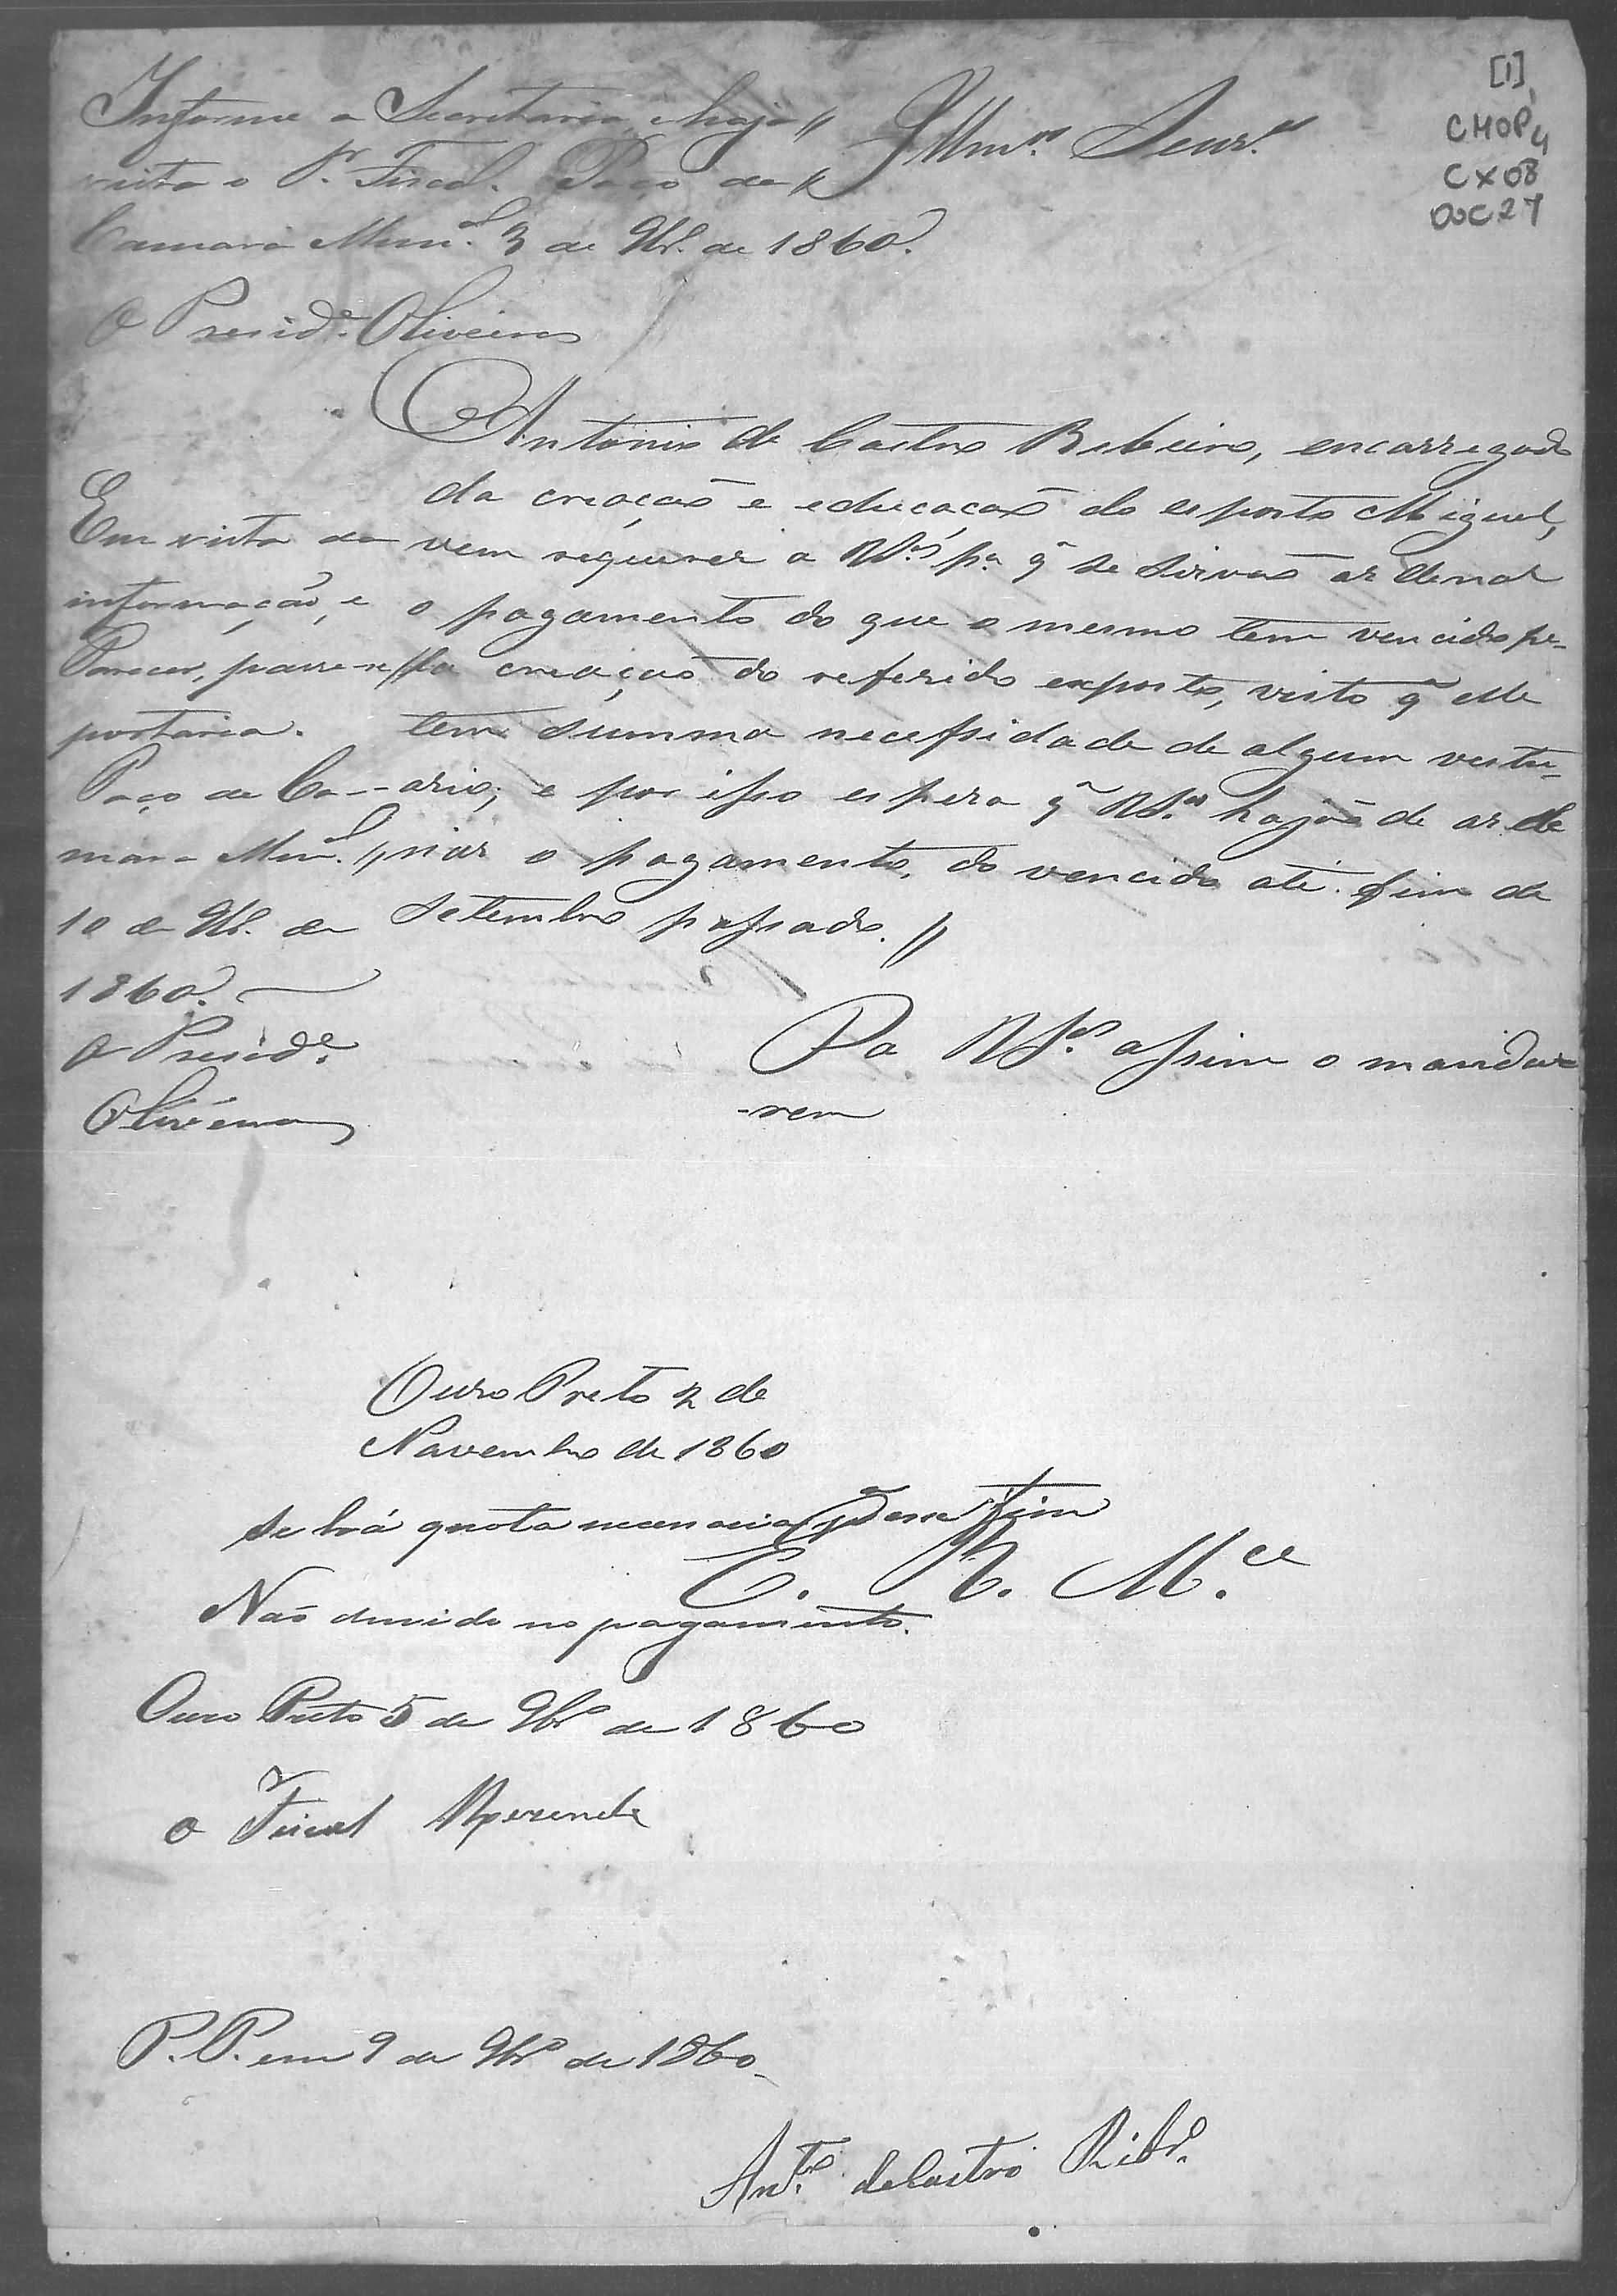 [1]
CMOP
CX08
DOC27
Informe a Secretaria, haja //
vista o Sr. Fiscal. Paço da //
Camara Mun.al 3 de 9br.o de 1860.
O Presid.e Oliveira
Illm.os Senr.es
Antonio de Castro Ribeiro, encarregado
da creação e educação do esposto Miguel,
vem requerer a VV.Sas p.a q~ se sirvão ordenar
o pagamento do que o mesmo tem vencido pe-
la creação do referido exposto, visto q~ elle
tem summa necessidade de algum vestu-
ario; e por isso espera q~ VV.Sas hajão de orde
nar o pagamento do vencido até fim de
Setembro passado. //
Em vista da
informação, e
Parecer, passe-se //
portaria.
Paço da Ca-
mara Mun.al //
10 de 9br.o de
1860.
O Presid.e
Oliveira
Pa VV.Sas assim o manda-
-rem
Ouro Preto 2 de
Novembro de 1860
se há quota necessaria p.a esse fim
E. R. M.ce
Não duvido no pagamento.
Ouro Preto 5 de 9br.o de 1860
O Fiscal
P. P. em 9 de 9br.o de 1860
Ant.o de Castro Ribr.o